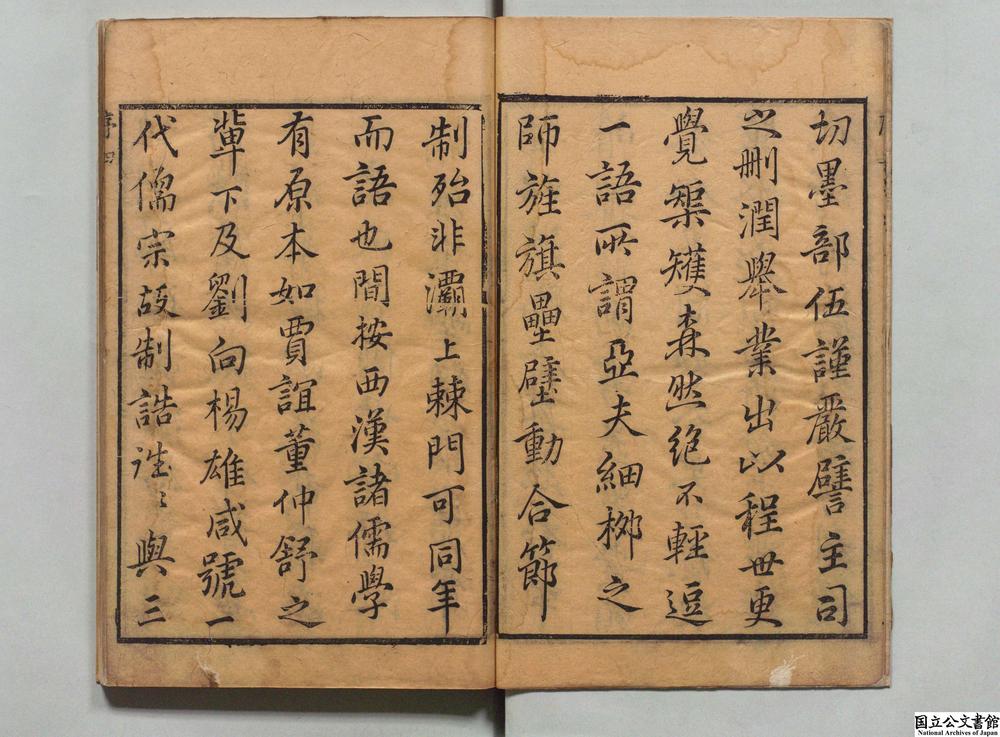 切墨部伍謹嚴譬主司
之刪潤舉業出以程世更
覺榘矱森然絶不輕逗
一語所謂亞夫細栁之
師旌旗壘壁動合節
制殆非灞上棘門可同年
而語也間按西漢諸儒學
有原本如賈誼董仲舒之
輩下及劉向楊雄咸號一
代儒宗故制誥淮〻與三
序 四
国立公文書館
National Archives of Japan